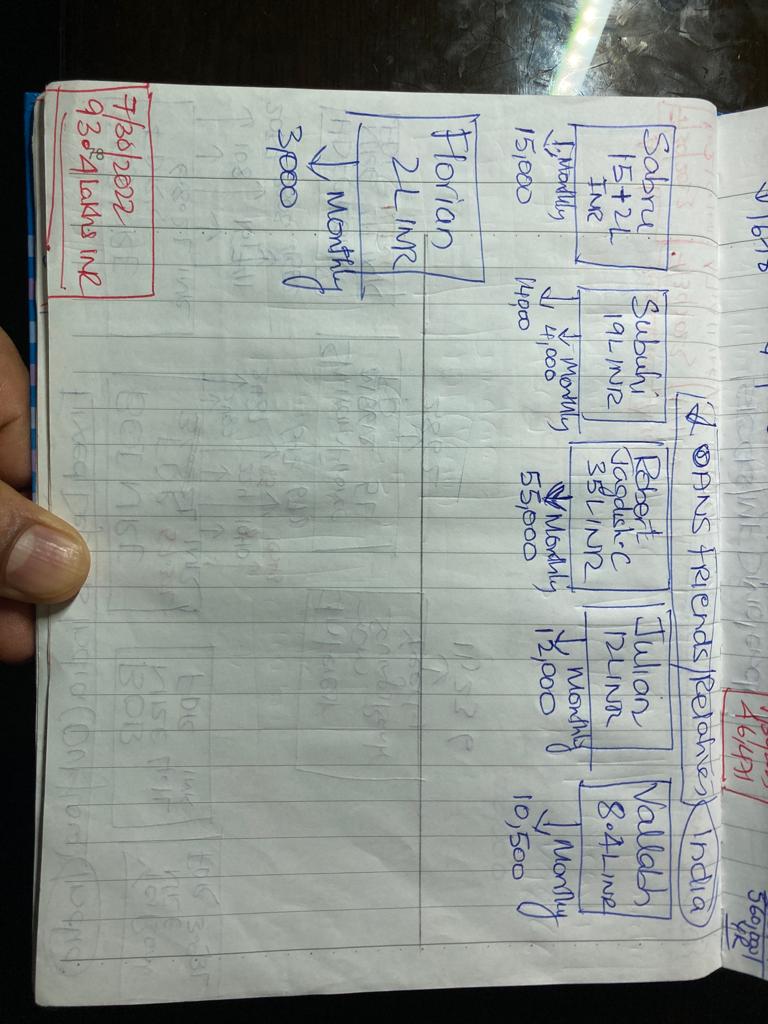 16-18
46,471
560,001
LOANS Friends/Relatives India
Sabru
15+2L
INR
Monthly
15,000
Subuhi
19L INR
Monthly
4,000
14,000
Robert
Jagdish.C
35L INR
Monthly
55,000
Julian
12L INR
Monthly
12,000
Vallabh
8.4L INR
Monthly
10,500
Florian
2L INR
Monthly
3,000
7/30/2022
93.4 Lakhs INR